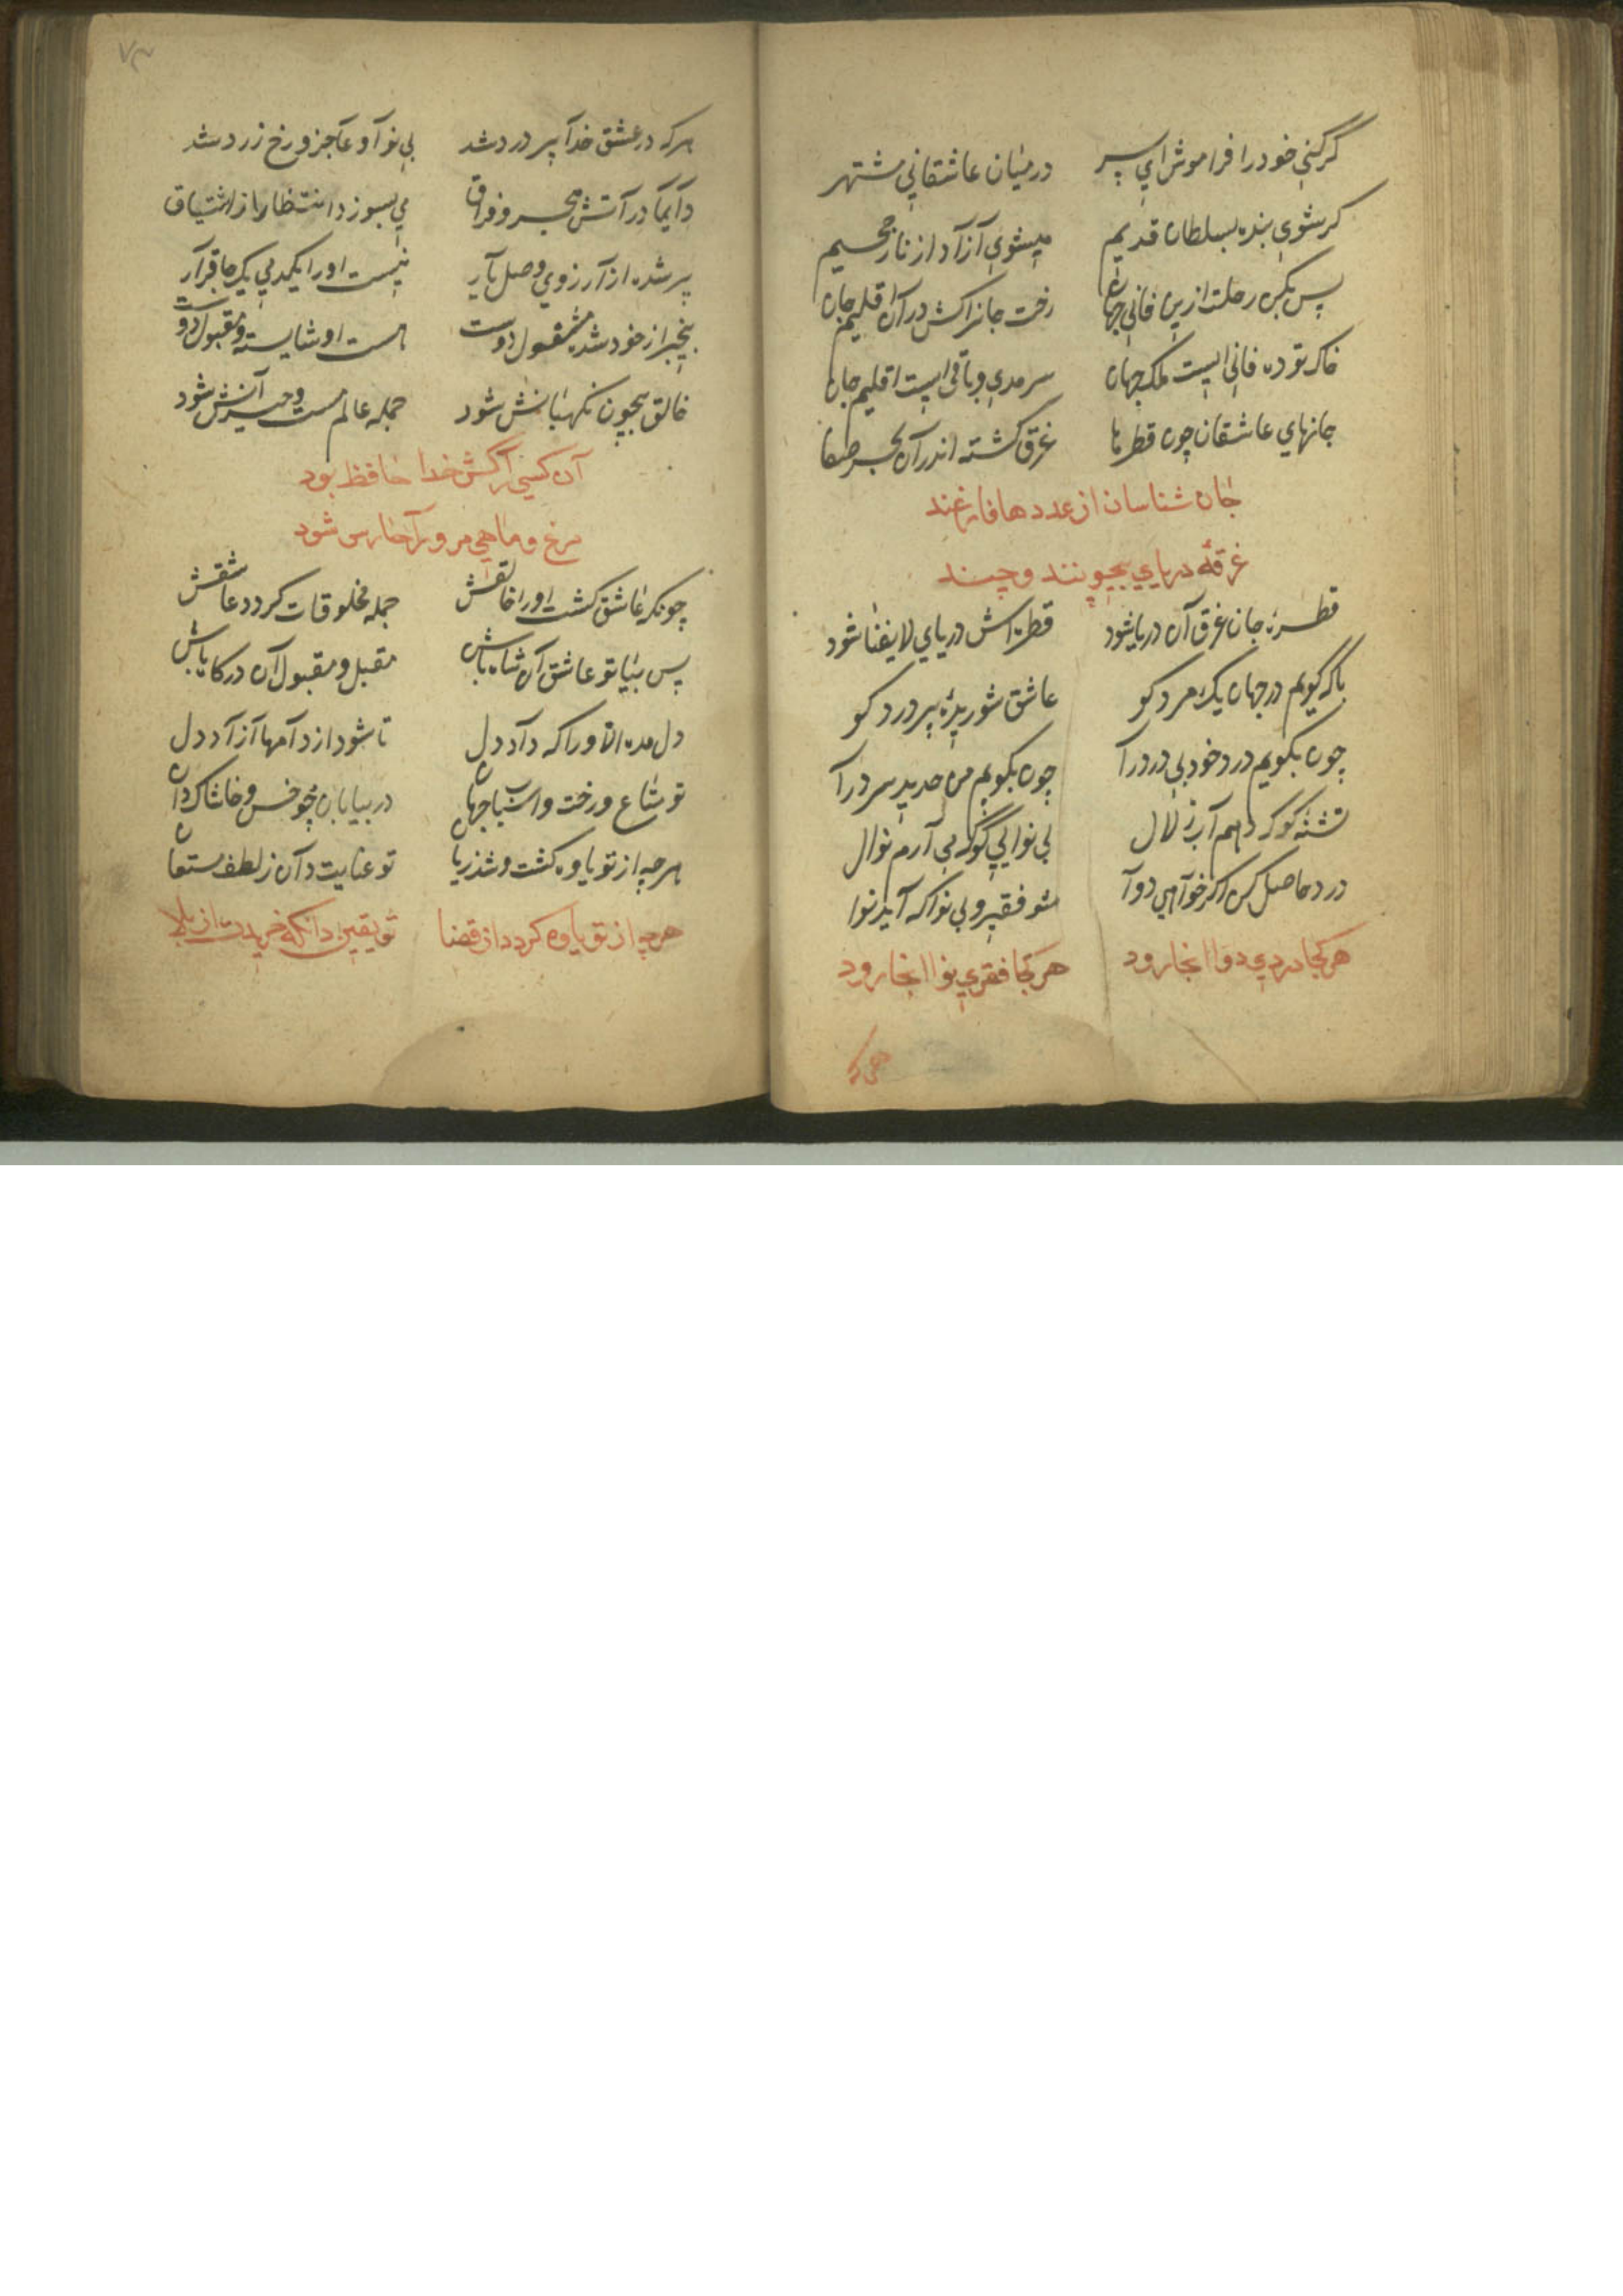 گر کنی خود را فراموش ای پسر در میان عاشقانی مشتهر
گر شوی بنده بسلطان قدیم میشوی آزاد از نار جحیم
پس بکن رحلت ازین فانی جهان رخت جانرا کش در آن اقلیم جان
خاک توده فانی است ملک جهان سرمدی و باقی است اقلیم جان
جانهای عاشقان چون قطرها غرق گشته اندر آن بحر صفا
جان شناسان از عددها فارغند
غرقهٔ دریای بیچونند و چند
قطرهٔ جان غرق آن دریا شود قطره‌اش دریای لا یفنا شود
با که گویم در جهان یک مرد کو عاشق شوریدهٔ پر درد کو
چون بگویم درد خود بی درد را چون بگویم من حدید سرد را
تشنه کو که دهم آب زلال بی نوایی کو که می آرم نوال
درد حاصل کن اگر خواهی دوا شو فقیر و بی نوا که آید نوا
هر کجا دردی دوا انجا رود
هر کجا فقری نوا انجا رود
هر که
هر که در عشق خدا پر درد شد بی نوا و عاجز و رخ زرد شد
دایما در آتش هجر و فراق می بسوزد انتظار از اشتیاق
پر شده از آرزوی وصل یار نیست او را یکدمی یک جا قرار
بیخبر از خود شده مشغول دوست هست او شایسته و مقبول دوست
خالق بیچون نگهبانش شود جمله عالم مست و حیرانش شود
آن کسی را کش خدا حافظ بود
مرغ و ماهی مر ورا حارس شود
چونکه عاشق گشت او را خالقش جمله مخلوقات گردد عاشقش
پس بیا تو عاشق آن شاه باش مقبل و مقبول آن درکاه باش
دل مده الا ورا که داد دل تا شود از دامها آزاد دل
تو متاع و رخت و اسباب جهان در بیابان چو خس و خاشاک دان
هر چه از تو یاوه گشت و شد زیان تو عنایت دان ز لطف مستعان
هر چه از تو یاوه گردد از قضا تو یقین دانکه خریدت از بلا